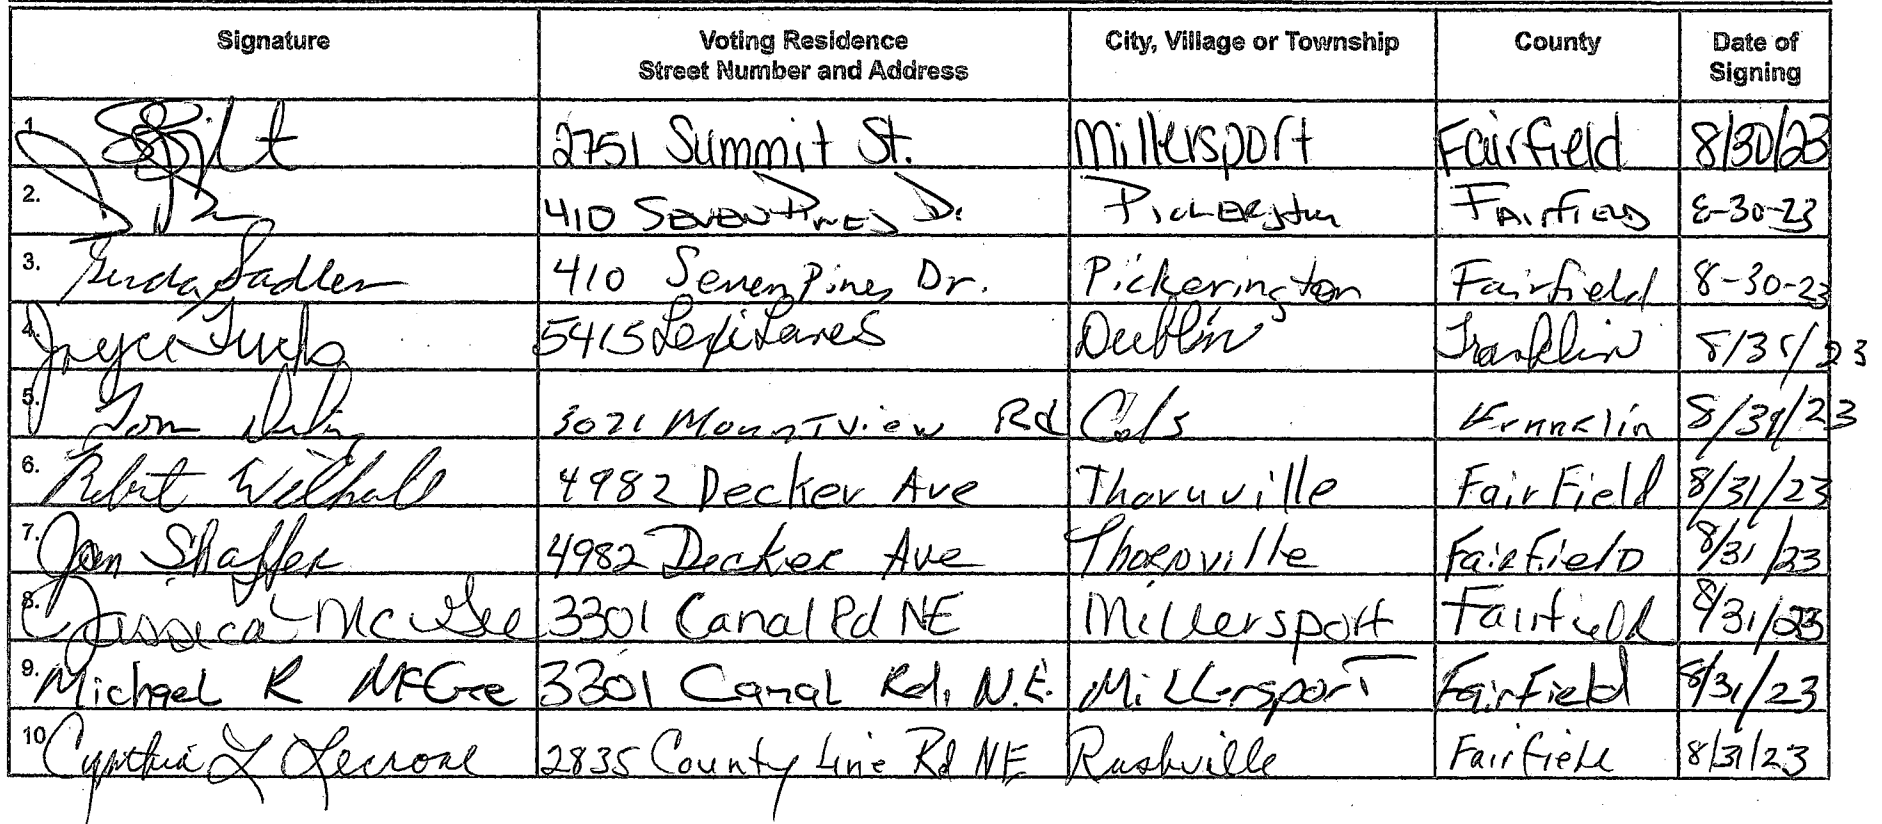 Signature Voting Residence Street Number and Address City, Village or Township County Date of Signing
1. 2751 Summit St. Millersport Fairfield 8/30/23
2. 410 SEVEN PINES Dr. Pickerington FAirfiELD 8-30-23
3. Sadler 410 Seven Pines Dr. Pickerington Fairfield 8-30-23
4. Joyce 5415 Dublin Franklin 23
5. Tom 3021 Mountview Rd Cols Franklin 8/31/23
6. Robert 4982 Decker Ave Thornville FairField 8/31/23
7. Jon Shaffer 4982 Decker Ave Thornville FairField 8/31/23
8. Jessica McGee 3301 Canal Rd NE Millersport Fairfield 8/31/23
9. Michael R McGee 3301 Canal Rd, N.E. Millersport Fairfield 8/31/23
10. Cynthia L Lecrone 2835 County Line Rd NE Rushville Fairfield 8/31/23